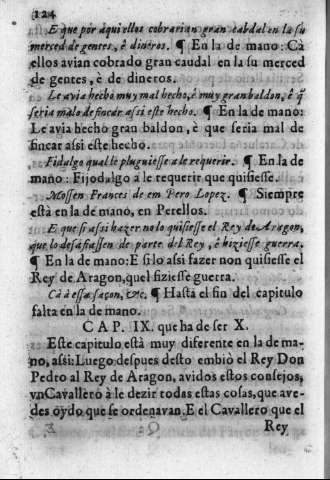 124
E que por aqui ellos cobrarian gran cabdal en la su
merced de gentes, è dineros. ¶ En la de mano: Cà
ellos avian cobrado gran caudal en la su merced
de gentes, è de dineros.
Le avia hecho muy mal hecho, è muy gran baldon, è q̃
seria malo de fincar assi este hecho. ¶ En la de mano:
Le avia hecho gran baldon, è que seria mal de
fincar assi este hecho.
Fidalgo qual le pluguiesse a le requerir. ¶ En la de
mano: Fijodalgo à le requerir que quisiesse.
Mossen Frances de em Pero Lopez. ¶ Siempre
està en la de mano, en Perellos.
E que si assi hazer no lo quisiesse el Rey de Aragon,
que lo desafiassen de parte del Rey, è hiziesse guerra.
¶ En la de mano: E si lo assi fazer non quisiesse el
Rey de Aragon, quel fiziesse guerra.
Cà à essa saçon, &c. ¶ Hasta el fin del capitulo
falta en la de mano.
CAP. IX. que ha de ser X.
Este capitulo està muy diferente en la de ma-
no, assi: Luego despues desto embiò el Rey Don
Pedro al Rey de Aragon, avidos estos consejos,
vn Cavallero à le dezir todas estas cosas, que ave-
des oydo que se ordenavan. E el Cavallero que el
Rey